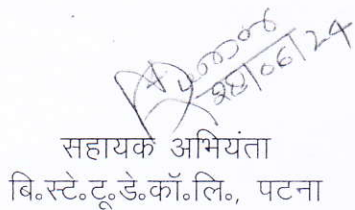 28/06/24
सहायक अभियंता
बि॰स्टे॰टू॰डे॰कॉ॰लि॰, पटना